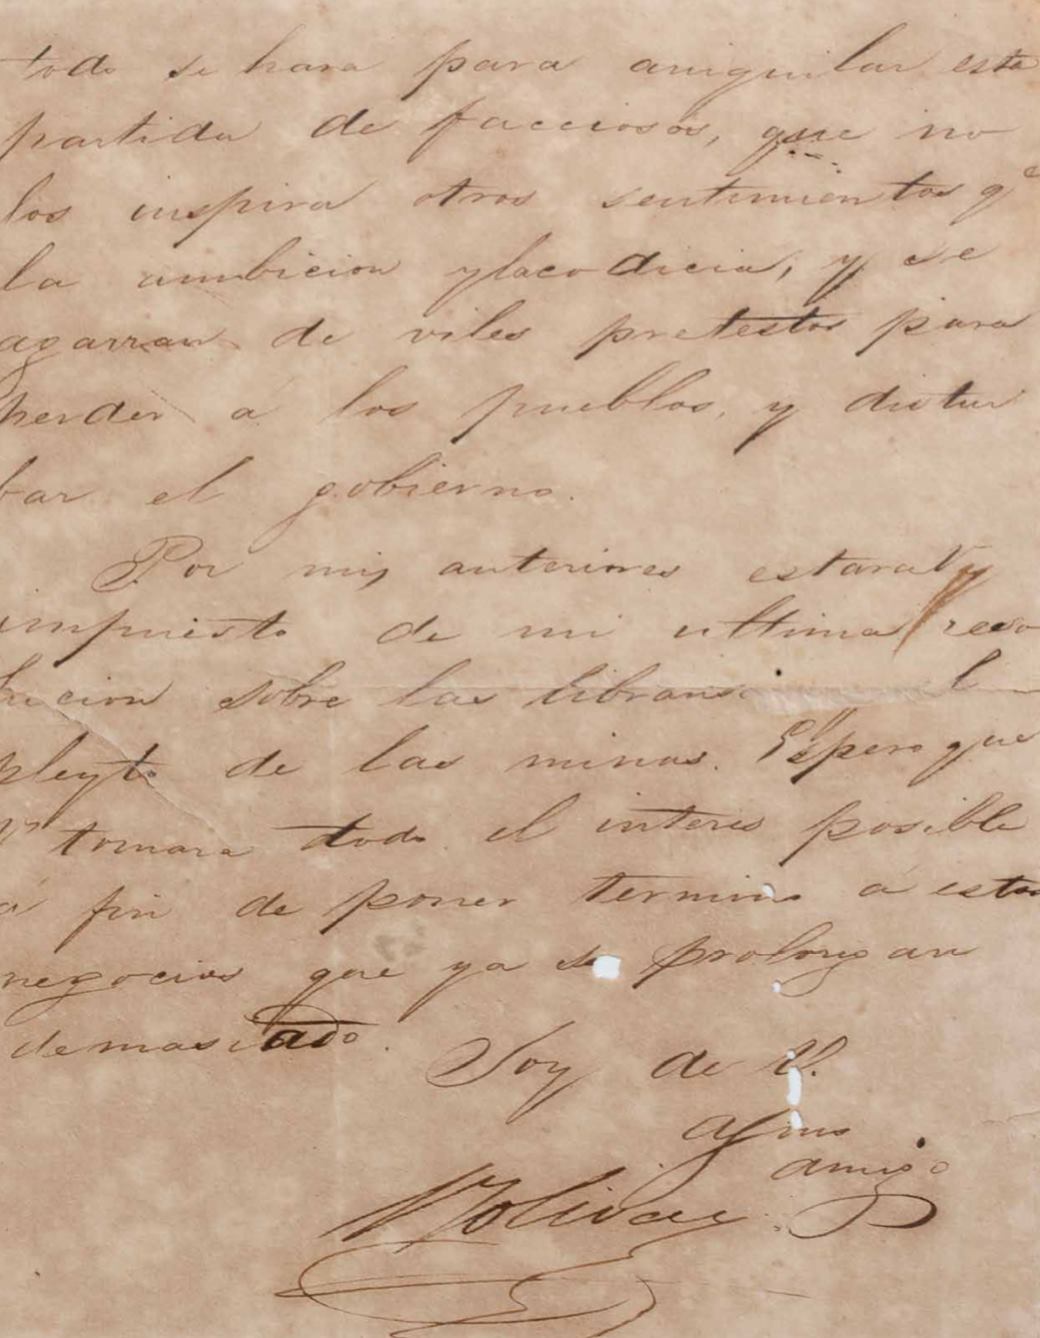 todo se hara para aniquilar esta
partida de facciosos, que no
los inspira otros sentimientos qe
la ambicion y la codicia, y se
agarran de viles pretestos para
perder á los pueblos, y distur
bar el gobierno.
Por mis anteriores estará V
impuesto de mi ultima reso
lucion sobre las
pleyto de las minas. Espero que
V tomara todo el interes posible
á fin de poner termino á estos
negocios que ya se prolongan
demasiado.
Soy de V.
afmo
amigo
Bolivar